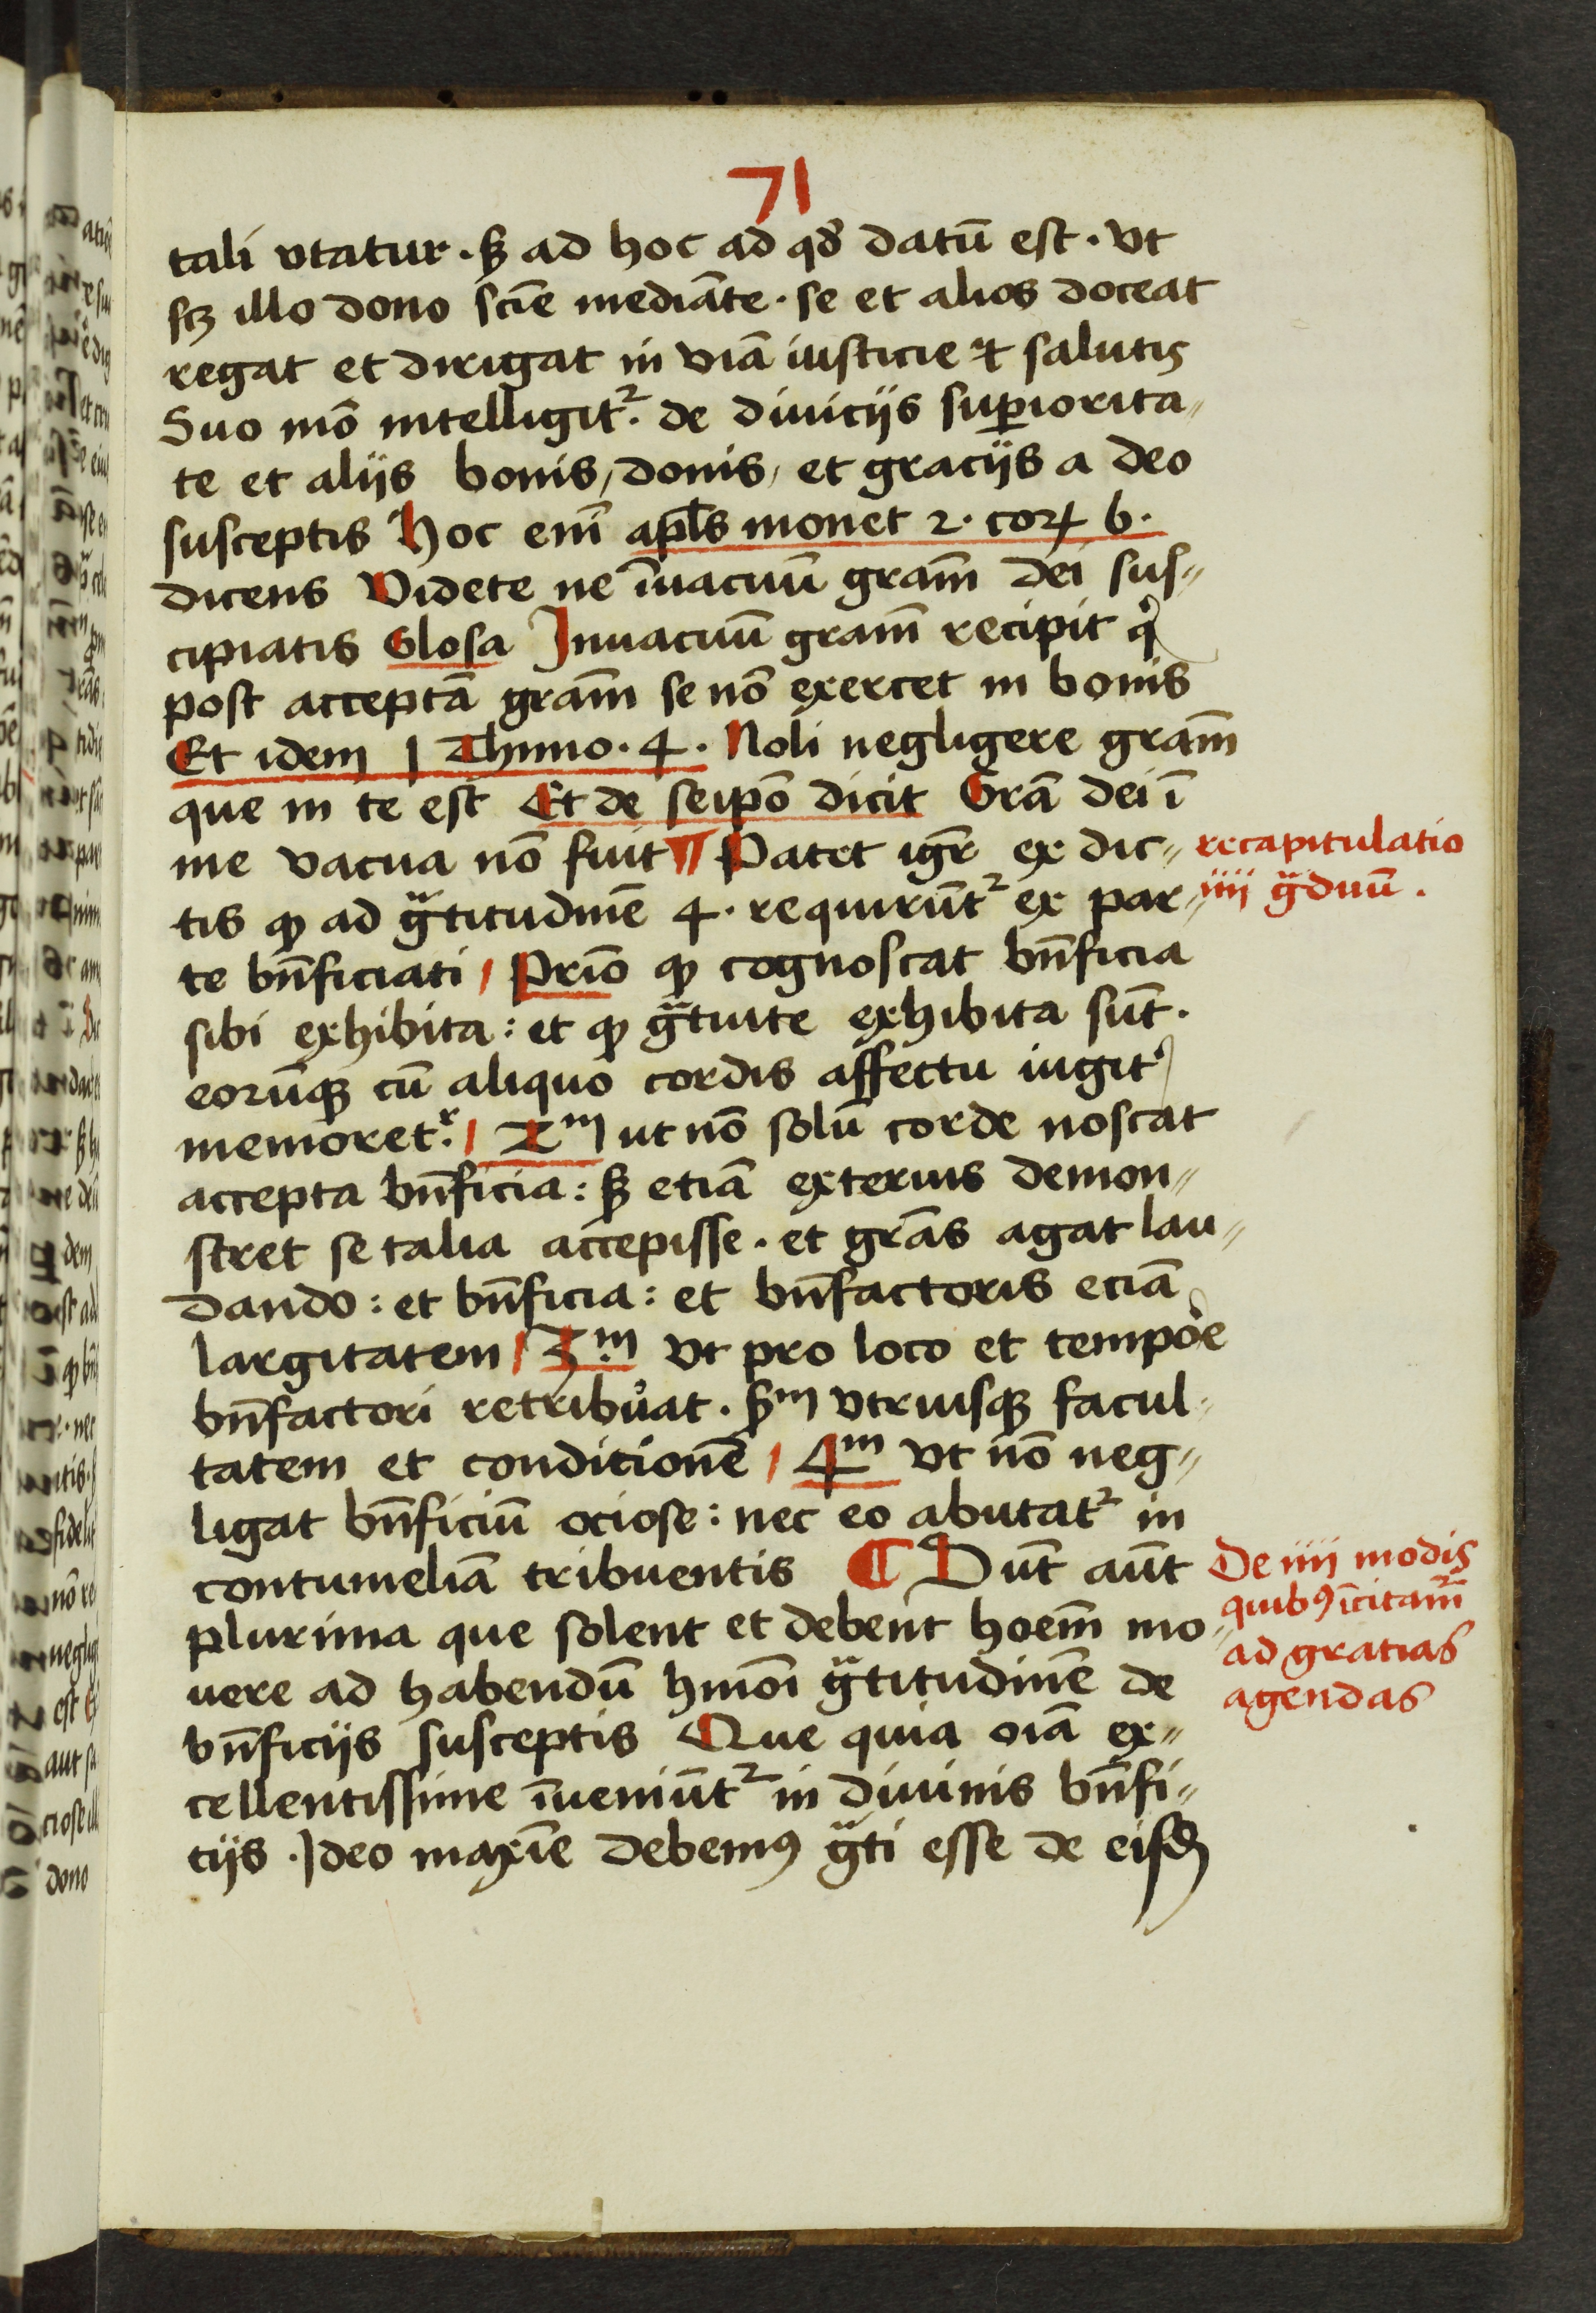 71
tali vtatur · sꝫ ad hoc ad qđ datū est · vt
scꝫ illo dono scīe mediāte · se et alios doceat
regat et dirigat in viā iusticie ⁊ salutis
Suo mō intelligitᷣ · de diuicijs superiorita„
te et alijs bonis, donis, et gracijs a deo
susceptis Hoc em̄ apl̄s monet 2 · corꝝ 6 ·
dicens Videte ne īuacuū gram̄ dei sus„
cipiatis Glosa Inuacuū gram̄ recipit qͥ
post acceptā gram̄ se nō exercet in bonis
Et idem 1 Thimo · 4 · Noli negligere gram̄
que in te est Et de seipō dicit Grā dei ī
me vacua nō fuit ¶ Patet igr̄ ex dic„
tis ꝙ ad gᷓtitudinē 4 · requirūtᷣ ex par„
te bn̄ficiati / Prīo ꝙ cognoscat bn̄ficia
sibi exhibita : et ꝙ gᷓtuite exhibita sūt ·
eorūqꝫ cū aliquo cordis affectu iugit᾽
memoretᷣ · / 2ᵐ ut nō solū corde noscat
accepta bn̄ficia : sꝫ etiā exterius demon„
stret se talia accepisse · et grās agat lau„
dando : et bn̄ficia : et bn̄factoris eciā
largitatem / 3ᵐ vt pro loco et tempoē
bn̄factori retribuat · sᵐ vtriusqꝫ facul„
tatem et conditionē / 4ᵐ vt nō neg„
ligat bn̄ficiū ociose : nec eo abutatᷣ in
contumeliā tribuentis ¶ Sūt aūt
plurima que solent et debent hoem̄ mo„
uere ad habendū hmōi gᷓtitudinē de
bn̄ficijs susceptis Que quia oīa ex„
cellentissime īueniūtᷣ in diuinis bn̄fi„
cijs · Ideo maxīe debemꝰ gᷓti esse de eisdꝫ
recapitulatio
iiii gᷓduū ·
De iiii modis
quibꝰ īcitamᷣ
ad gratias
agendas